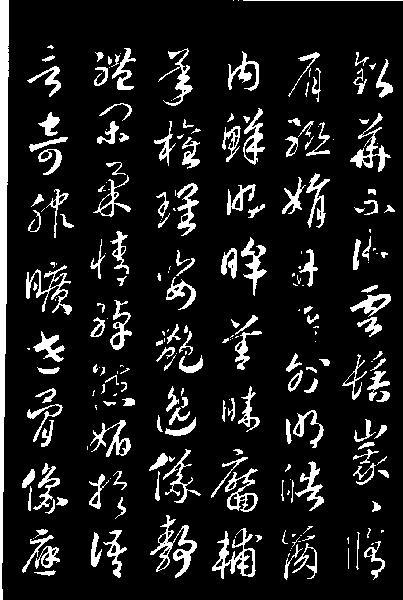 鉛華不御雲髻峩〻脩
眉聯娟丹唇外朗皓齒
內鮮明眸善睞靨輔
承權瓌姿艷逸儀靜
體閑柔情綽態媚於語
言奇服曠世骨像應